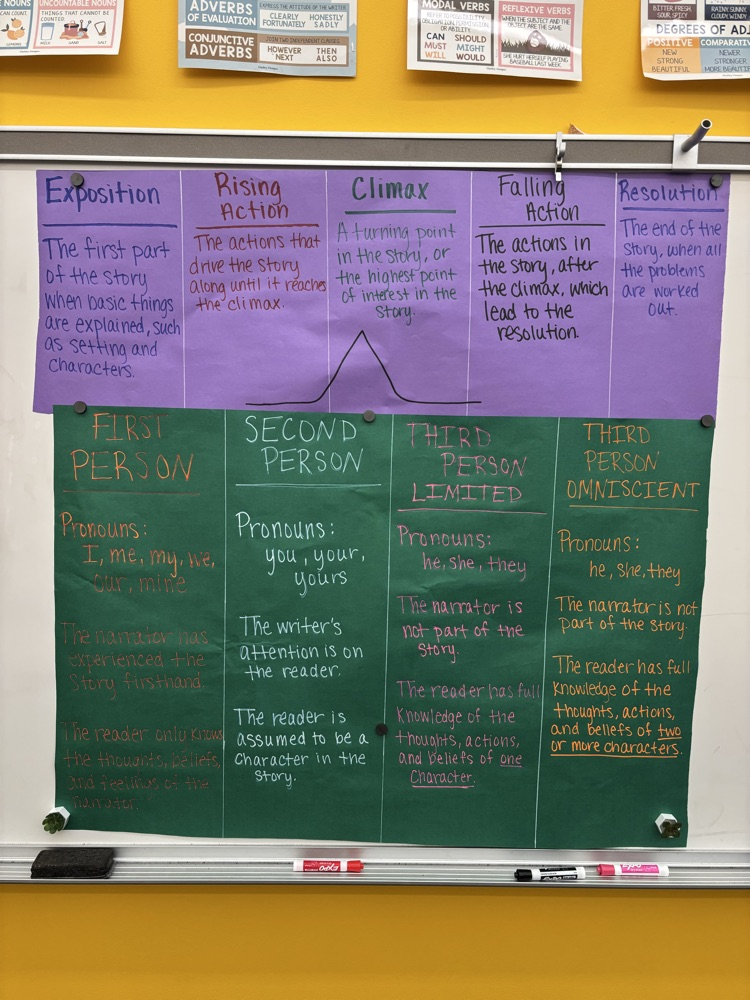 UNCOUNTABLE NOUNS
CAN COUNT.
THINGS THAT CANNOT BE
COUNTED.
LEMONS
MILK
HAIR
SAND
ADVERBS
OF EVALUATION
EXPRESS THE ATTITUDE OF THE WRITER
CLEARLY HONESTLY
FORTUNATELY SADLY
CONJUNCTIVE
ADVERBS
JOIN TWO INDEPENDENT CLAUSES
HOWEVER THEN
NEXT ALSO
MODAL VERBS
OR ABILITY
CAN SHOULD
MUST MIGHT
WILL WOULD
REFLEXIVE VERBS
WHEN THE SUBJECT AND THE
OBJECT ARE THE SAME.
SHE HURT HERSELF PLAYING
BASEBALL LAST WEEK.
BITTER, FRESH,
SOUR, SPICY
RAINY, SUNNY,
CLOUDY, WINDY
DEGREES OF ADJ
POSITIVE
NEW
STRONG
BEAUTIFUL
COMPARATIVE
NEWER
STRONGER
MORE BEAUTIFUL
Exposition
The first part
of the story
when basic things
are explained, such
as setting and
characters.
Rising
Action
The actions that
drive the story
along until it reaches
the climax.
Climax
A turning point
in the story, or
the highest point
of interest in the
story.
Falling
Action
The actions in
the story, after
the climax, which
lead to the
resolution.
Resolution
The end of the
story, when all
the problems
are worked
out.
FIRST
PERSON
Pronouns:
I, me, my, we,
our, mine
The narrator has
experienced the
story firsthand.
The reader only knows
the thoughts, beliefs,
and feelings of the
narrator.
SECOND
PERSON
Pronouns:
you, your,
yours
The writer's
attention is on
the reader.
The reader is
assumed to be a
character in the
story.
THIRD
PERSON
LIMITED
Pronouns:
he, she, they
The narrator is
not part of the
story.
The reader has full
knowledge of the
thoughts, actions,
and beliefs of one
character.
THIRD
PERSON
OMNISCIENT
Pronouns:
he, she, they
The narrator is not
part of the story.
The reader has full
knowledge of the
thoughts, actions,
and beliefs of two
or more characters.
EXPO
EXPO
EXPO